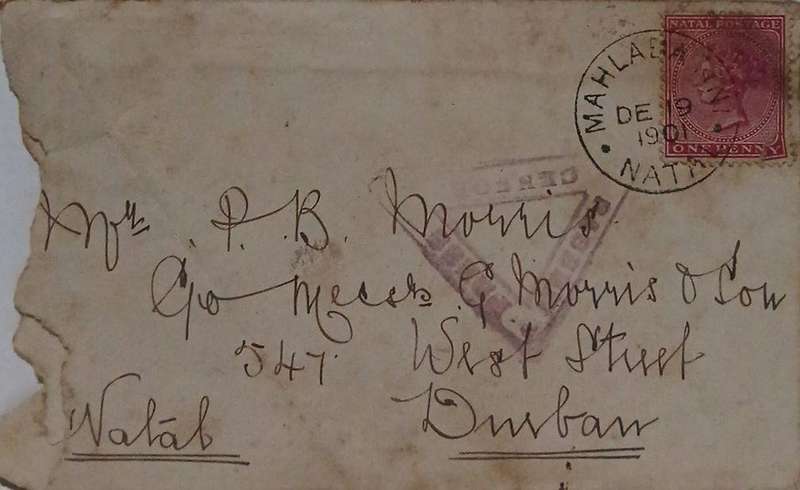 NATAL POSTAGE
ONE PENNY
MAHLABATINI
DE 19
1901
NATAL
PASSED
CENSOR
Mr. P. B. Morris.
C/o Messrs G Morris & Son
547. West Street
Durban
Natal